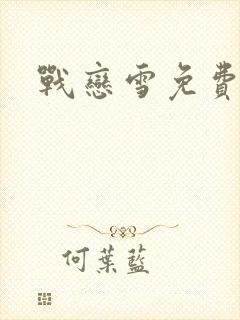 戰戀雪免費
何葉藍